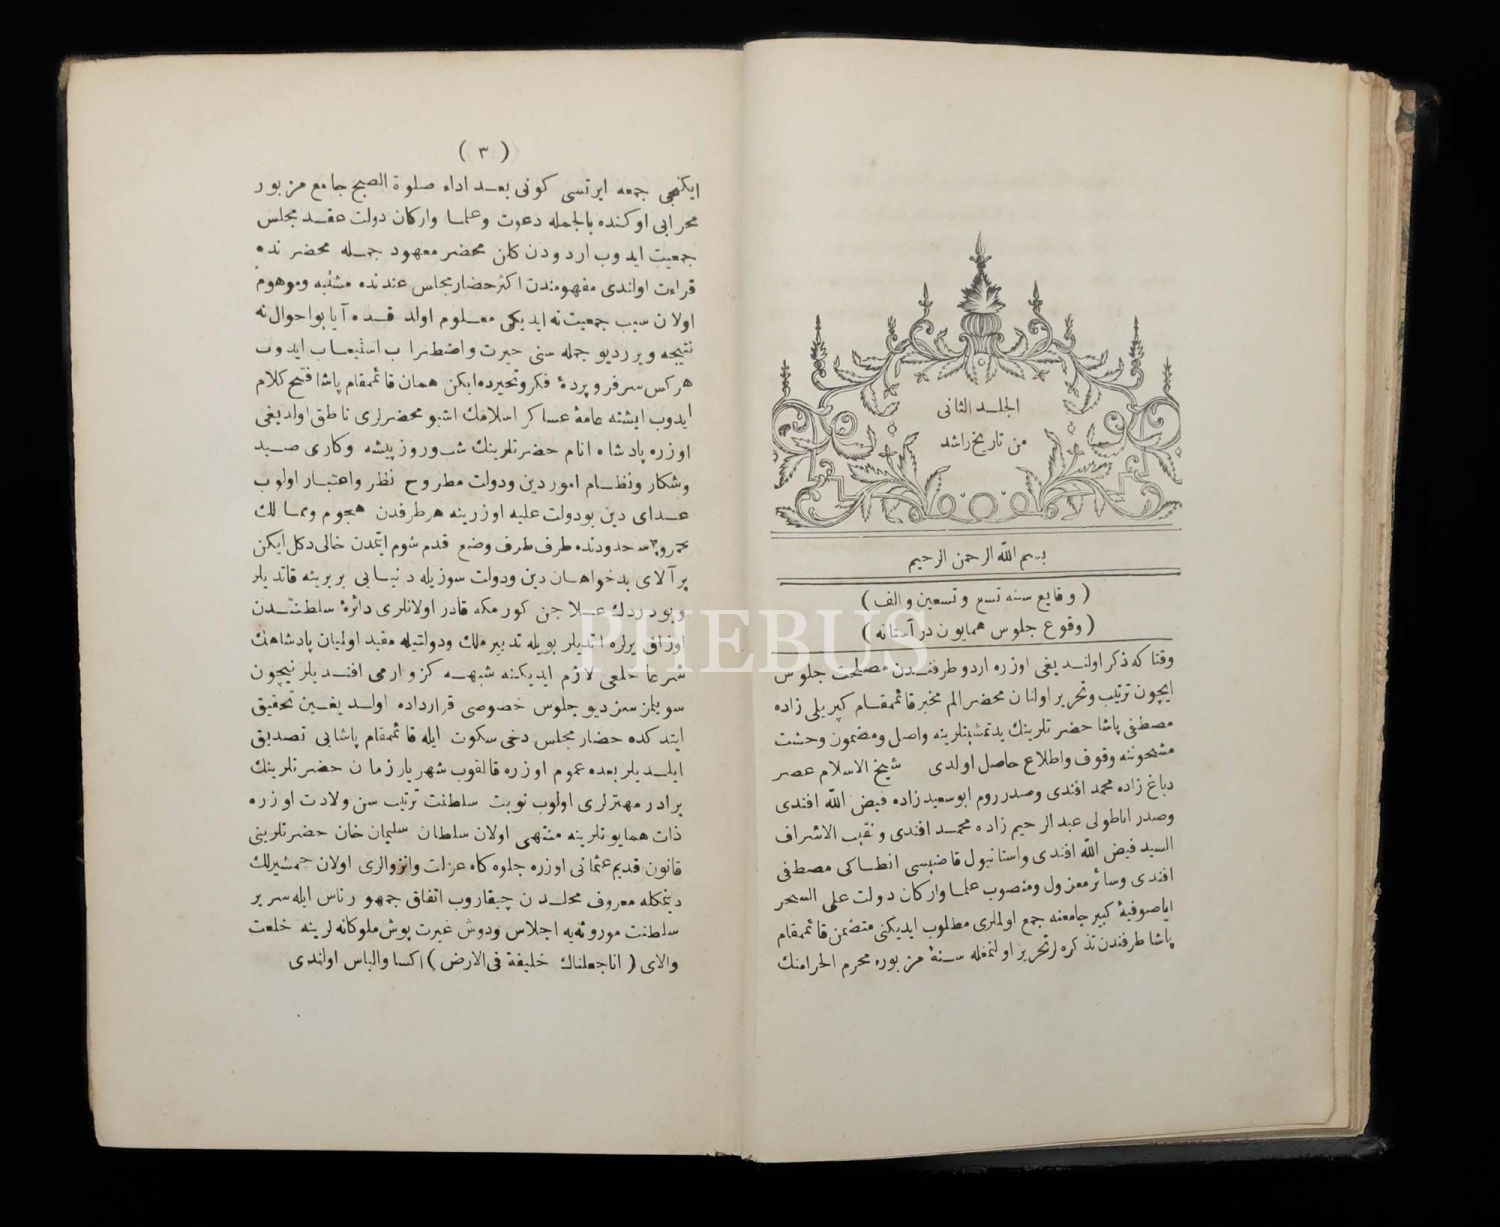 الجلد الثانى
من تاريخ راشد
بسم الله الرحمن الرحيم
( وقايع سنه تسع وتسعين والف )
( وقوع جلوس همايون در آستانه )
وقتا كه ذكر اولنديغى اوزره اردو طرفندن مصلحت جلوس
ايچون ترتيب وتحرير اولنان محضر الم مخبر قائممقام كپريلى زاده
مصطفى پاشا حضرتلرينك يدتمشيتلرينه واصل ومضمون وحشت
مشحوننه وقوف واطلاع حاصل اولدى شيخ الاسلام عصر
دباغ زاده محمد افندى وصدر روم ابوسعيد زاده فيض الله افندى
وصدر اناطولى عبد الرحيم زاده محمد افندى ونقيب الاشراف
السيد فيض الله افندى واستانبول قاضيسى انطاكى مصطفى
افندى وسائر معزول ومنصوب علما واركان دولت على السحر
اياصوفيۀ كبير جامعنه جمع اولملرى مطلوب ايديكنى متضمن قائممقام
پاشا طرفندن تذكره لر تحرير اولنمغله سنۀ مزبوره محرم الحرامنك
( ٣ )
ايكنجى جمعه ايرتسى كونى بعد اداء صلوة الصبح جامع مزبور
محرابى اوكنده بالجمله دعوت وعلما واركان دولت عقد مجلس
جمعيت ايدوب اردودن كلن محضر معهود جمله محضرنده
قراءت اولندى مفهومندن اكثر حضار مجلس عندنده مشتبه وموهوم
اولان سبب جمعيت نه ايديكى معلوم اولدقده آيا بو احوال نه
نتيجه ويرر ديو جمله سنى حيرت واضطراب استيعاب ايدوب
هركس سرفروبردۀ فكر وتحيرده ايكن همان قائممقام پاشا فتح كلام
ايدوب ايشته عامۀ عساكر اسلامك اشبو محضرلرى ناطق اولديغى
اوزره پادشاه انام حضرتلرينك شب وروز پيشه وكارى صيد
وشكار ونظام امور دين ودولت مطروح نظر واعتبار اولوب
عداى دين بو دولت عليه اوزرينه هر طرفدن هجوم وممالك
محروسه حدودنده طرف طرف وضع قدم شوم ايتمدن خالى دكل ايكن
پر آلاى بدخواهان دين ودولت سوزيله دنيايى بربرينه قاتديلر
وبو دردك علاجن كورمكه قادر اولانلرى دائرۀ سلطنتدن
اوزاق يرلره اتديلر بويله تدبير ملك ودولتيله مقيد اولميان پادشاهك
شرعا خلعى لازم ايديكنه شبهه كز وارمى افنديلر نيچون
سويلمزسز ديو جلوس خصوصى قرارداده اولديغين تحقيق
ايتدكده حضار مجلس دخى سكوت ايله قائممقام پاشايى تصديق
ايلديلر بعده عموم اوزره قالقوب شهريار زمان حضرتلرينك
برادر مهترلرى اولوب نوبت سلطنت ترتيب سن ولادت اوزره
ذات همايونلرينه منتهى اولان سلطان سليمان خان حضرتلرينى
قانون قديم عثمانى اوزره جلوه كاه عزلت وانزوالرى اولان جمشيرلك
ديمكله معروف محلدن چيقاروب اتفاق جمهور ناس ايله سرير
سلطنت موروثه يه اجلاس ودوش غيرت پوش ملوكانه لرينه خلعت
والاى ( انا جعلناك خليفة فى الارض ) اكسا والباس اولندى
PHEBUS